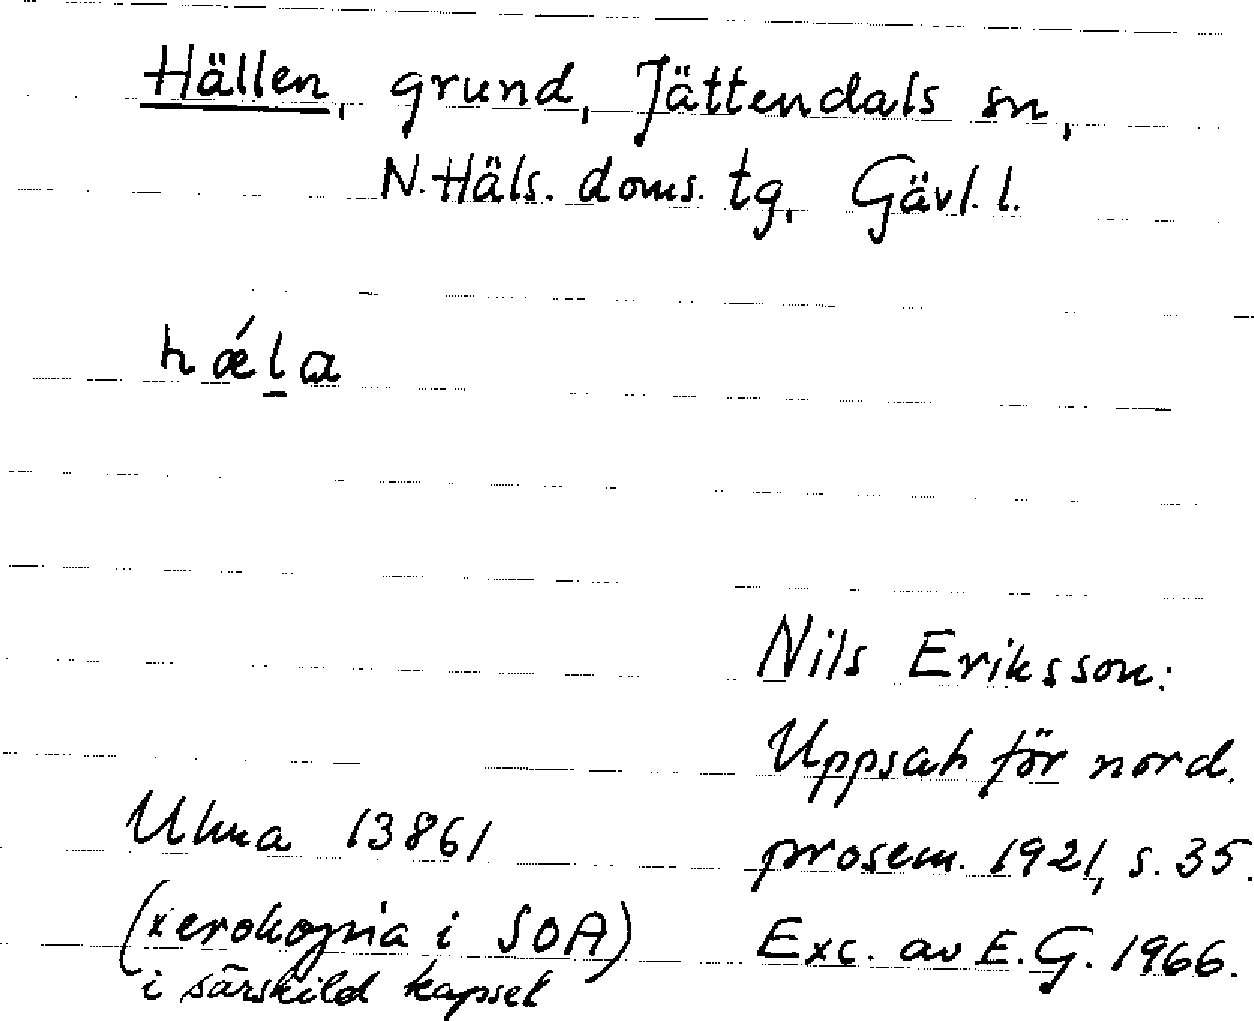 Hällen, grund, Jättendals sn,
N. Häls. doms. tg, Gävl. l.
hǽl̲a
Nils Eriksson:
Uppsats för nord.
prosem. 1921, s. 35.
Exc. av E. G. 1966.
Ulma 13861
(xerokopia i SOA)
i särskild kapsel